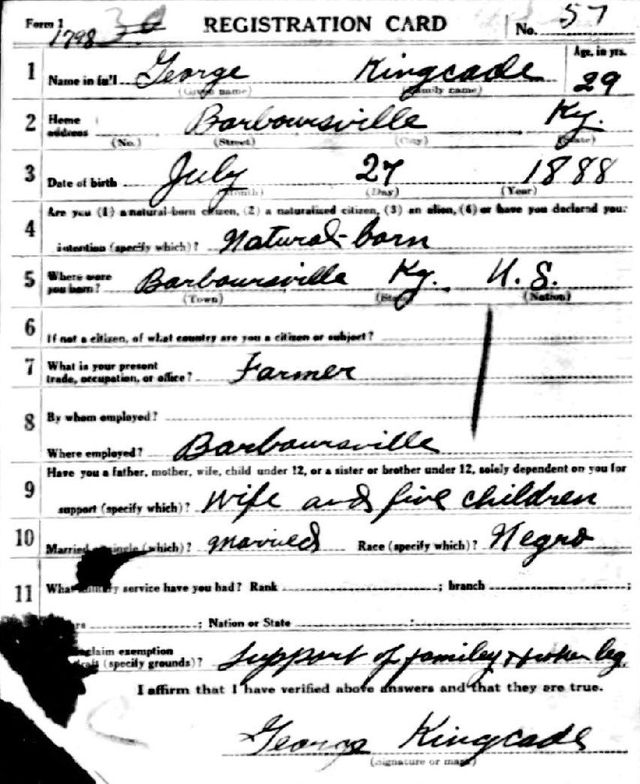 Form 1
REGISTRATION CARD
1798
No. 57
1 Name in full George Kingcade Age, in yrs. 29
(Given name) (Family name)
2 Home address Barboursville Ky.
(No.) (Street) (City) (State)
3 Date of birth July 27 1888
(Month) (Day) (Year)
4 Are you (1) a natural-born citizen, (2) a naturalized citizen, (3) an alien, (4) or have you declared your
intention (specify which)? Natural-born
5 Where were you born? Barboursville Ky. U.S.
(Town) (State) (Nation)
6 If not a citizen, of what country are you a citizen or subject?
7 What is your present trade, occupation, or office? Farmer
8 By whom employed?
Where employed? Barboursville
9 Have you a father, mother, wife, child under 12, or a sister or brother under 12, solely dependent on you for
support (specify which)? Wife and five children
10 Married or single (which)? Married Race (specify which)? Negro
11 What military service have you had? Rank ; branch ;
; Nation or State
claim exemption
(specify grounds)? Support of familey + leg
I affirm that I have verified above answers and that they are true.
George Kingcade
(Signature or mark)